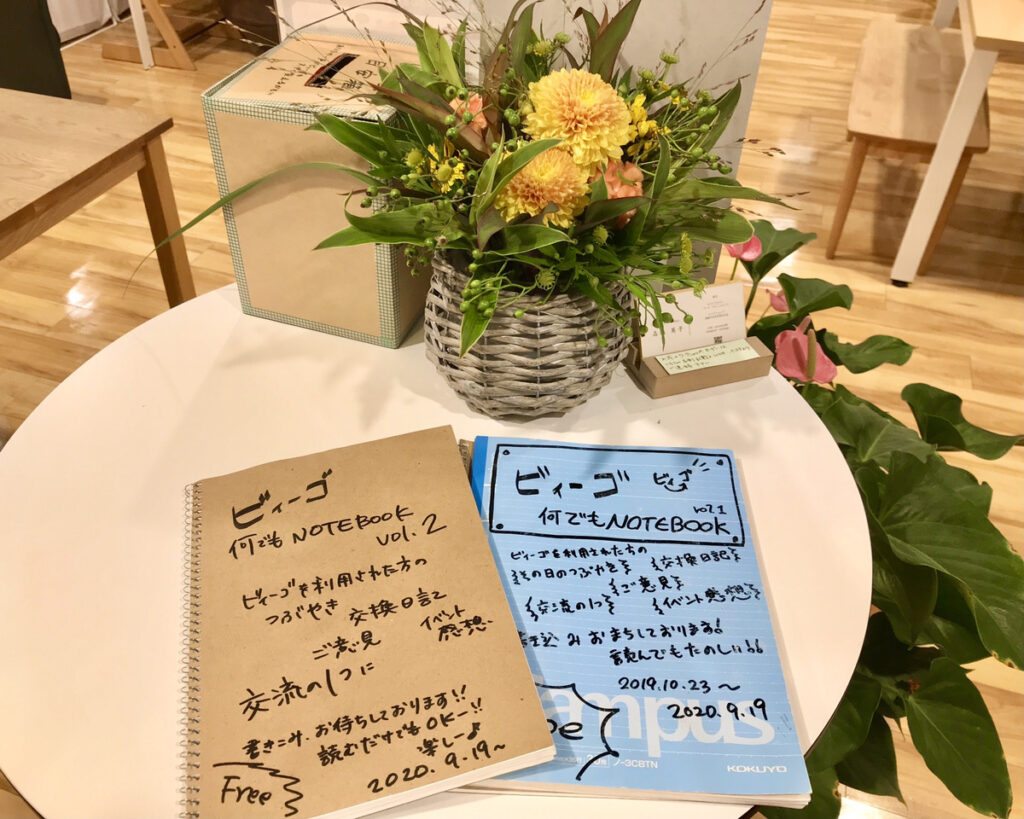 ビィーゴ
何でもNOTEBOOK
vol.2
ビィーゴを利用された方の
つぶやき 交換日記
ご意見 イベント感想
交流の1つに
書きこみ、お待ちしております!!
読むだけでもOKー!!
楽しー♪
2020.9.19~
Free
ビィーゴ ビィーゴ
vol.1
何でもNOTEBOOK
ビィーゴを利用された方の
その日のつぶやき 交換日記
ご意見
交流の1つ イベント感想
込みおまちしております!
読んでもたのしい!!
2019.10.23~
2020.9.19
ampus
ノ-3CBTN
KOKUYO